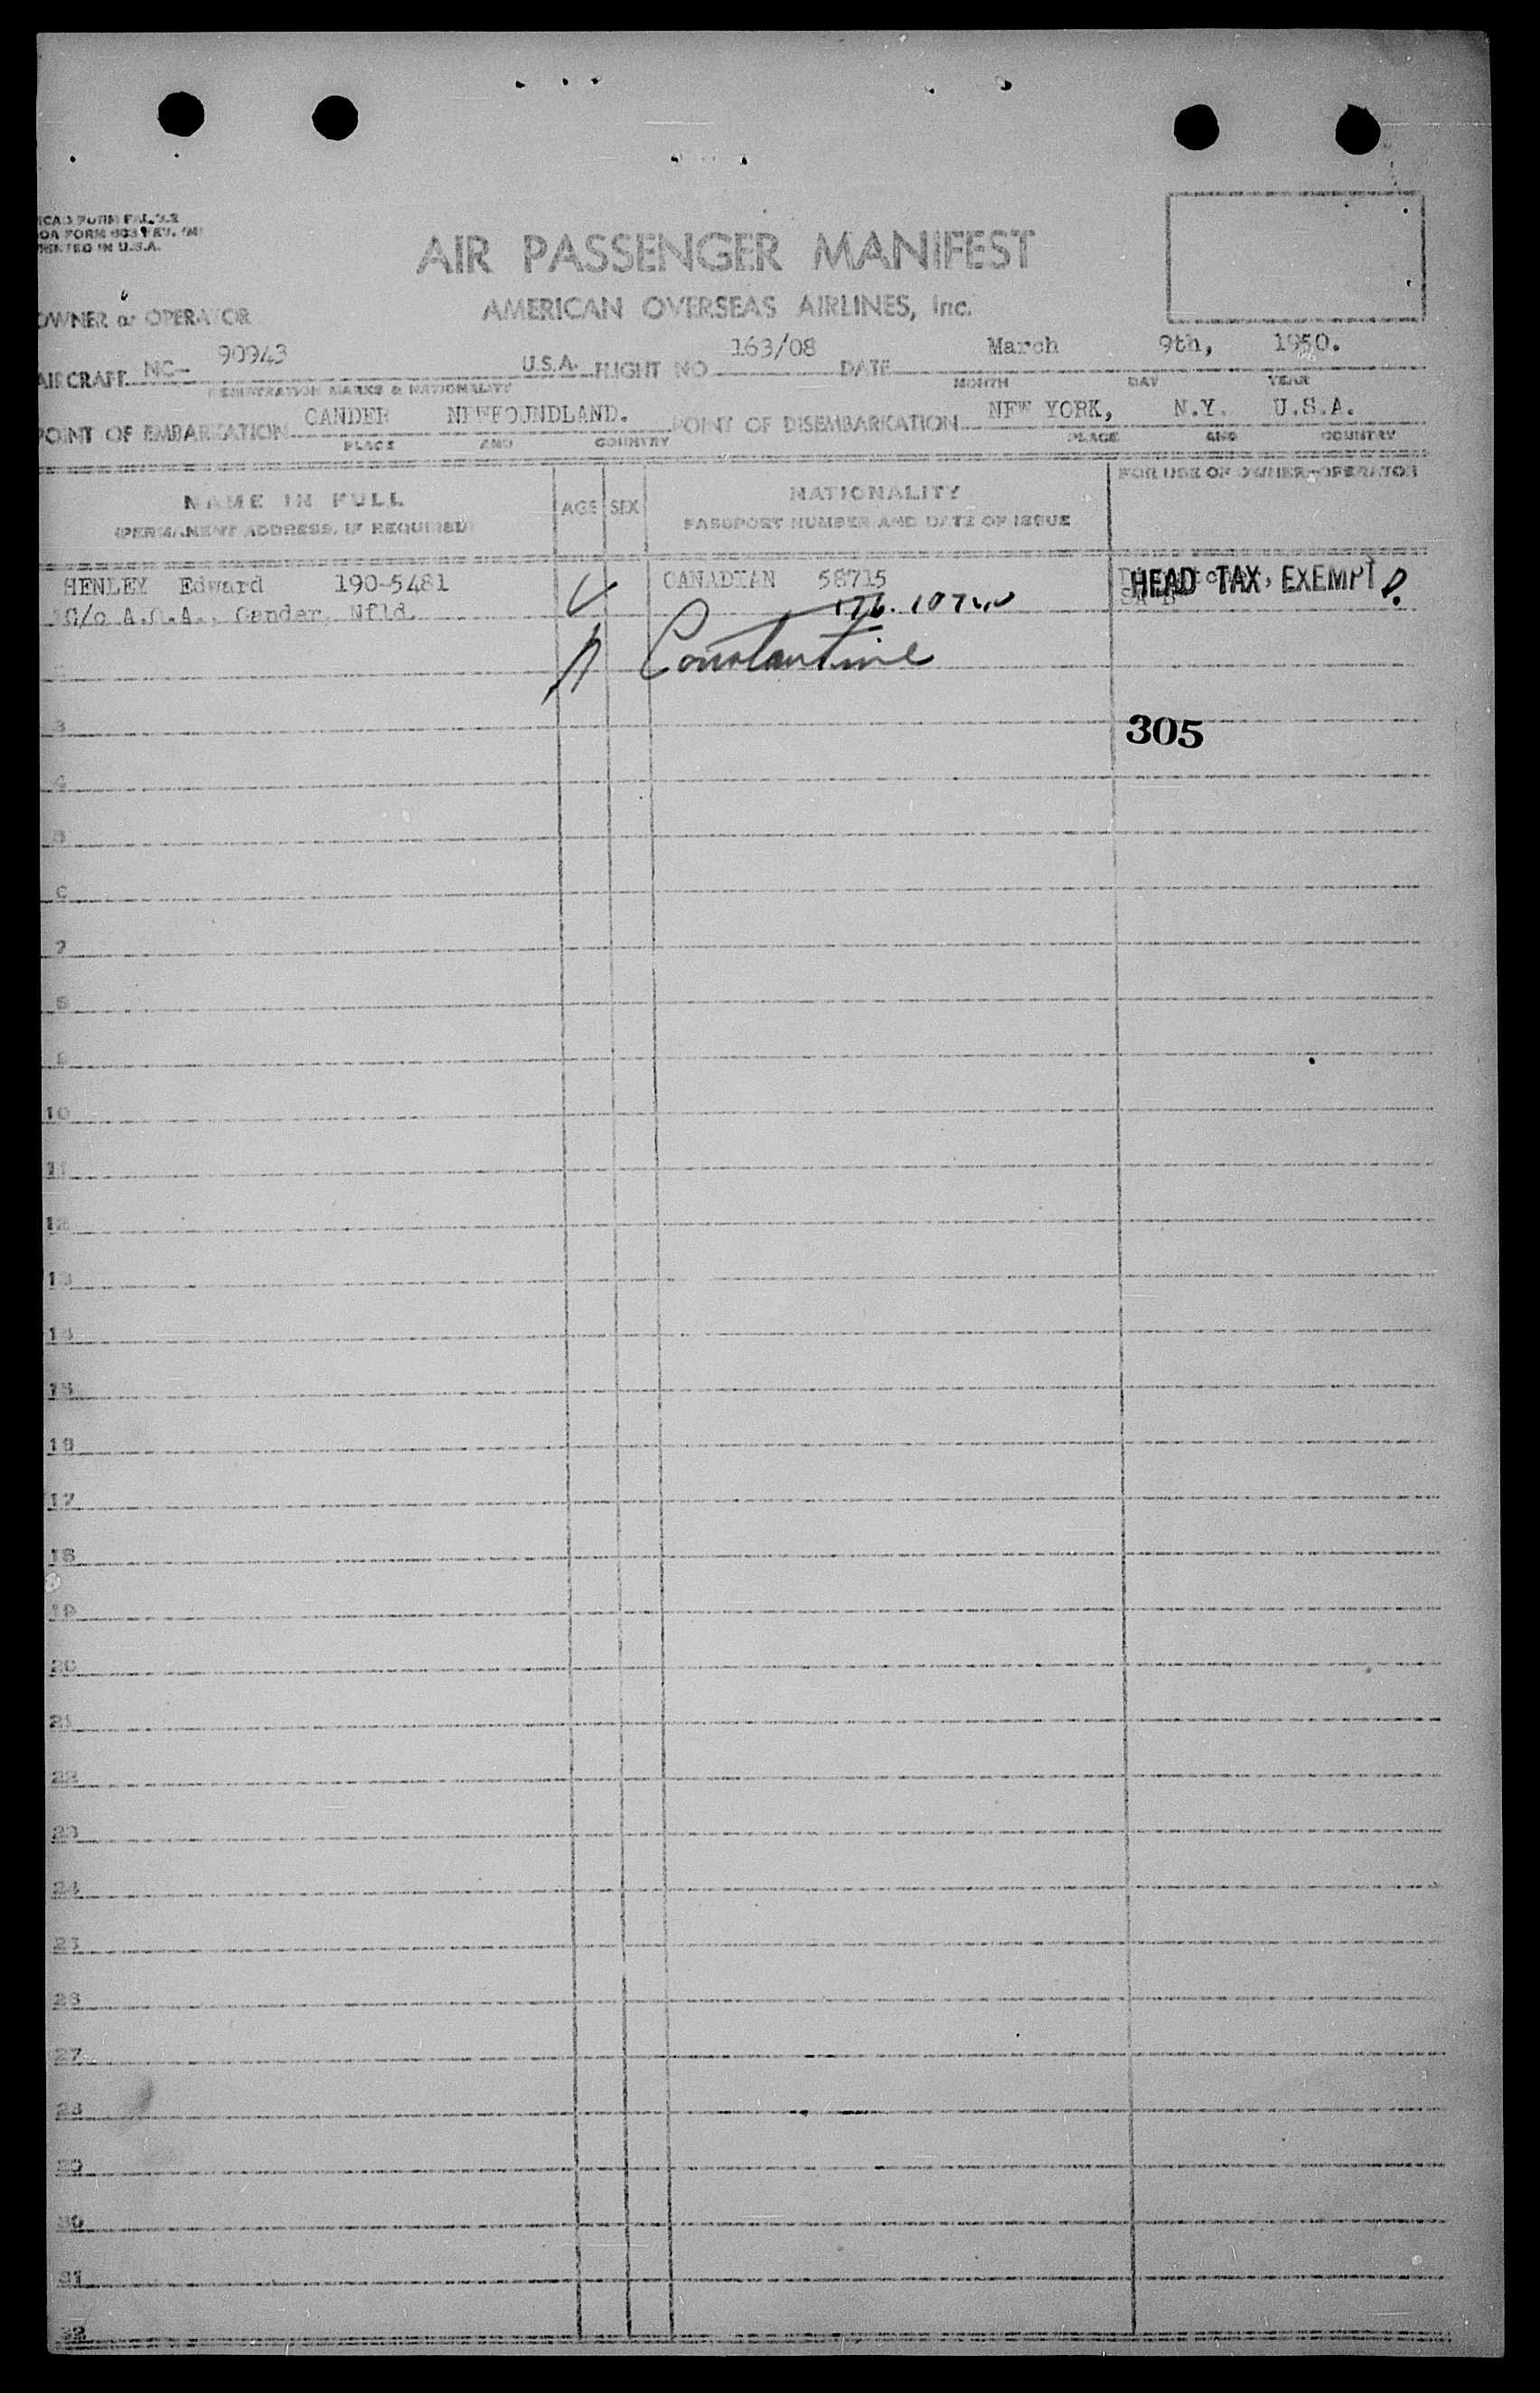 ICAO FORM FAL 2.2
AOA FORM 603 REV. (M)
PRINTED IN U.S.A.
AIR PASSENGER MANIFEST
OWNER or OPERATOR AMERICAN OVERSEAS AIRLINES, Inc.
AIRCRAFT NC- 90943 U.S.A. FLIGHT NO 163/08 DATE March 9th, 1950.
REGISTRATION MARKS & NATIONALITY MONTH DAY YEAR
POINT OF EMBARKATION GANDER NEWFOUNDLAND. POINT OF DISEMBARKATION NEW YORK, N.Y. U.S.A.
PLACE AND COUNTRY PLACE AND COUNTRY
NAME IN FULL AGE SEX NATIONALITY FOR USE OF OWNER-OPERATOR
(PERMANENT ADDRESS, IF REQUIRED) PASSPORT NUMBER AND DATE OF ISSUE
HENLEY Edward 190-5481 CANADIAN 58715 HEAD TAX EXEMPT
C/o A.O.A., Gander, Nfld.
Constantine
3 305
4
5
6
7
8
9
10
11
12
13
14
15
16
17
18
19
20
21
22
23
24
25
26
27
28
29
30
31
32